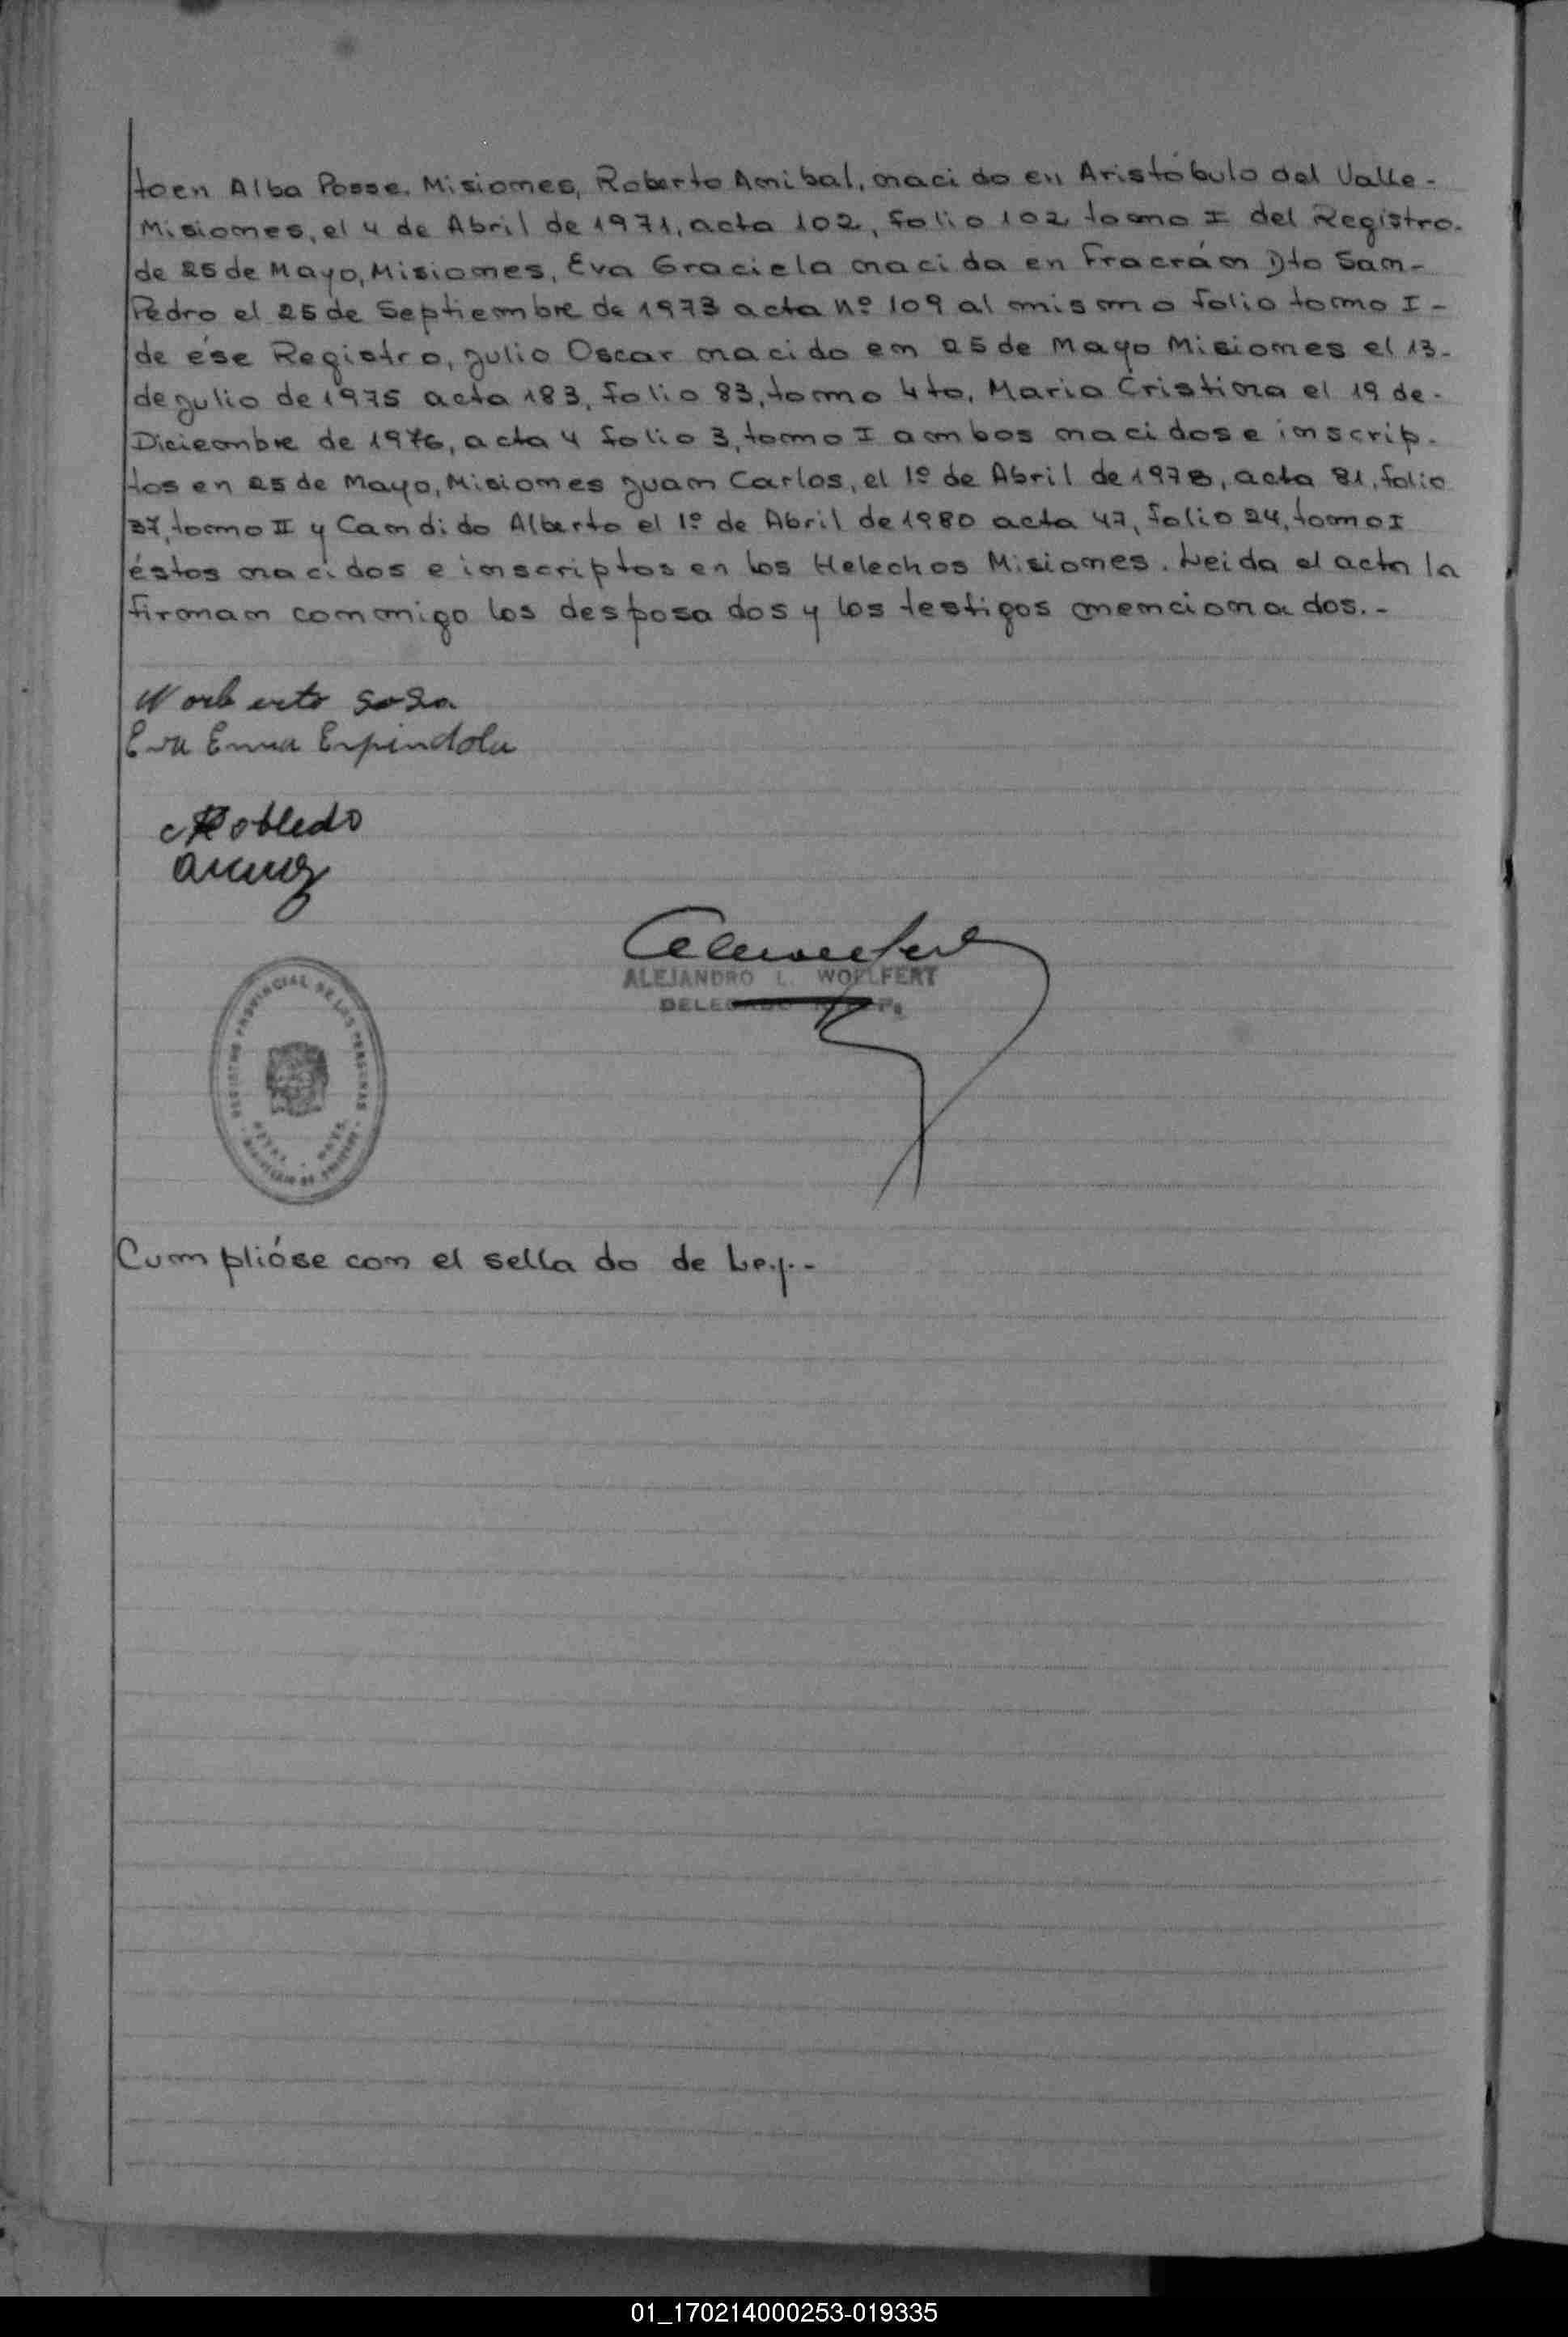 to en Alba Posse. Misiones, Roberto Anibal, nacido en Aristóbulo del Valle-
Misiones, el 4 de Abril de 1971, acta 102, folio 102 tomo I del Registro.
de 25 de Mayo, Misiones, Eva Graciela nacida en Fracrán Dto San-
Pedro el 25 de Septiembre de 1973 acta nº 109 al mismo folio tomo I-
de ése Registro, Julio Oscar nacido en 25 de Mayo Misiones el 13-
de Julio de 1975 acta 183, folio 83, tomo 4to, Maria Cristina el 19 de-
Diciembre de 1976, acta 4 folio 3, tomo I ambos nacidos e inscrip-
tos en 25 de Mayo, Misiones Juan Carlos, el 1º de Abril de 1978, acta 81, folio
37, tomo II y Candido Alberto el 1º de Abril de 1980 acta 47, folio 24, tomo I
éstos nacidos e inscriptos en los Helechos Misiones. Leida el acta la
firman conmigo los desposados y los testigos mencionados.-
Norberto Sosa
Eva Enna Espindola
Robledo
ALEJANDRO L. WOELFERT
REGISTRO PROVINCIAL DE LAS PERSONAS
Cumplióse con el sellado de Ley.-
01_170214000253-019335